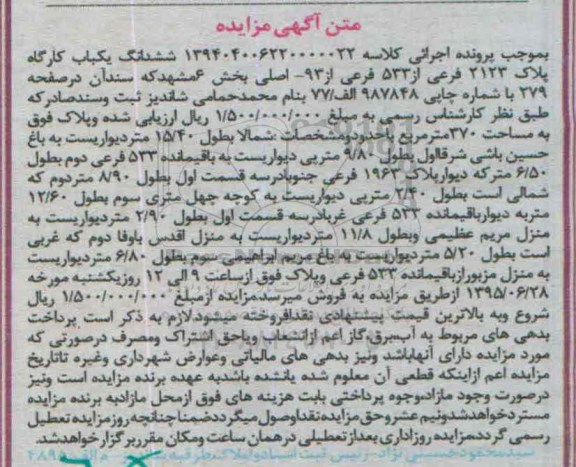 متن آگهی مزایده
بموجب پرونده اجرائی کلاسه ۱۳۹۴۰۴۰۰۶۲۲۰۰۰۰۰۲۲ ششدانگ یکباب کارگاه
پلاک ۲۱۲۳ فرعی از۵۳۳ فرعی از۹۳- اصلی بخش ۶مشهدکه سندآن درصفحه
۲۷۹ با شماره چاپی ۹۸۷۸۴۸ الف/۷۷ بنام محمدحمامی شاندیز ثبت وسندصادرکه
طبق نظر کارشناس رسمی به مبلغ ۱/۵۰۰/۰۰۰/۰۰۰ ریال ارزیابی شده وپلاک فوق
به مساحت ۳۷۰مترمربع باحدودومشخصات :شمالا بطول ۱۵/۴۰ متردیواریست به باغ
حسین باشی شرقااول بطول ۹/۸۰ متریی دیواریست به باقیمانده ۵۳۳ فرعی دوم بطول
۶/۵۰ مترکه دیوارپلاک ۱۹۶۳ فرعی جنوبادرسه قسمت اول بطول ۸/۹۰ متردوم که
شمالی است بطول ۲/۴۰ متریی دیواریست به کوچه چهل متری سوم بطول ۱۲/۶۰
متربه دیوارباقیمانده ۵۳۳ فرعی غربادرسه قسمت اول بطول ۲/۹۰ متردیواریست به
منزل مریم عظیمی وبطول ۱۱/۸ متردیواریست به منزل اقدس باوفا دوم که غربی
است بطول ۵/۲۰ متردیواریست به باغ مریم ابراهیمی سوم بطول ۶/۸۰ متردیواریست
به منزل مزبورازباقیمانده ۵۳۳ فرعی وپلاک فوق ازساعت ۹ الی ۱۲ روزیکشنبه مورخه
۱۳۹۵/۰۶/۲۸ ازطریق مزایده به فروش میرسدمزایده ازمبلغ ۱/۵۰۰/۰۰۰/۰۰۰ ریال
شروع وبه بالاترین قیمت پیشنهادی نقدافروخته میشودلازم به ذکر است پرداخت
بدهی های مربوط به آب،برق،گاز اعم ازانشعاب ویاحق اشتراک ومصرف درصورتی که
مورد مزایده دارای آنهاباشد ونیز بدهی های مالیاتی وعوارض شهرداری وغیره تاتاریخ
مزایده اعم ازاینکه قطعی آن معلوم شده یانشده باشدبه عهده برنده مزایده است ونیز
درصورت وجود مازاد،وجوه پرداختی بابت هزینه های فوق ازمحل مازادبه برنده مزایده
مستردخواهدشدونیم عشروحق مزایده نقداوصول میگرددضمناچنانچه روزمزایده تعطیل
رسمی گرددمزایده روزاداری بعدازتعطیلی درهمان ساعت ومکان مقرربرگزارخواهدشد.
سیدمحمودحسینی نژاد- رئیس ثبت اسنادواملاک طرقبه